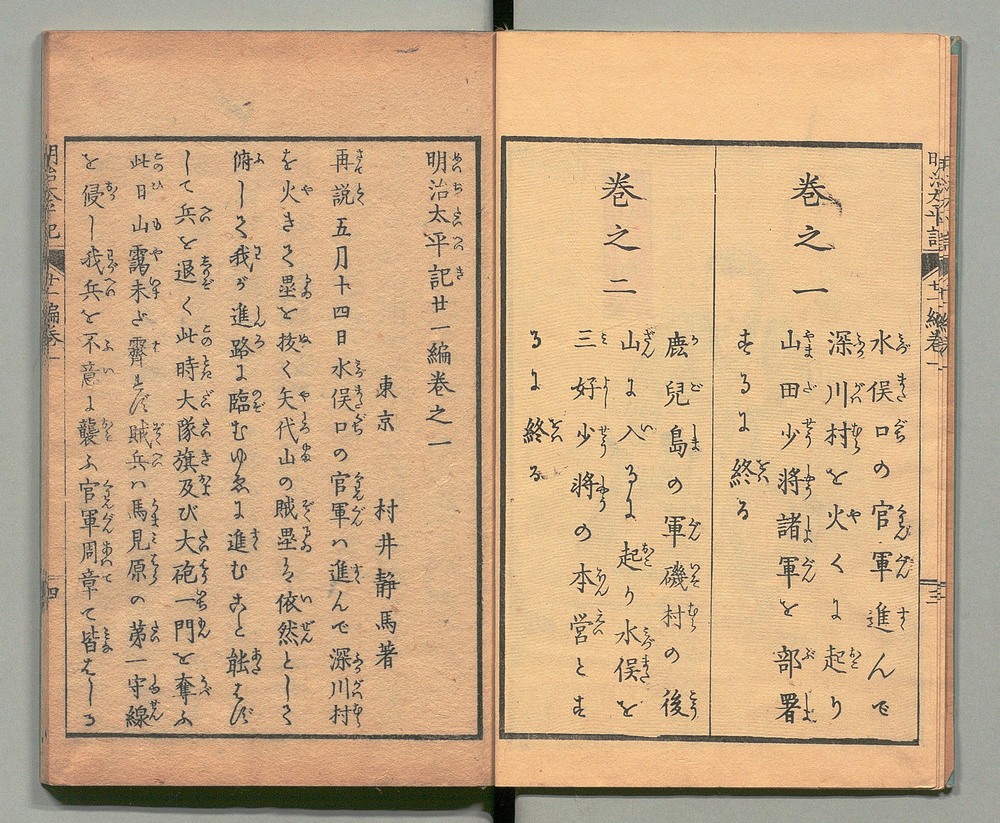 巻之一
水俣口の官軍進んで
深川村を火くに起り
山田少将諸軍を部署
するに終る
巻之二
鹿兒島の軍磯村の後
山に入るに起り水俣を
三好少将の本営とす
るに終る
明治太平記廿一編巻之一
東京 村井静馬著
再説五月十四日水俣口の官軍ハ進んで深川村
を火きて塁を抜く矢代山の賊塁ハ依然として
俯して我が進路に臨むゆゑに進むこと能はず
して兵を退く此時大隊旗及び大砲一門を奪ふ
此日山靄未だ霽ず賊兵ハ馬見原の第一守線
を侵し我兵を不意に襲ふ官軍周章て皆
明治太平記
廿一編巻一
三
四